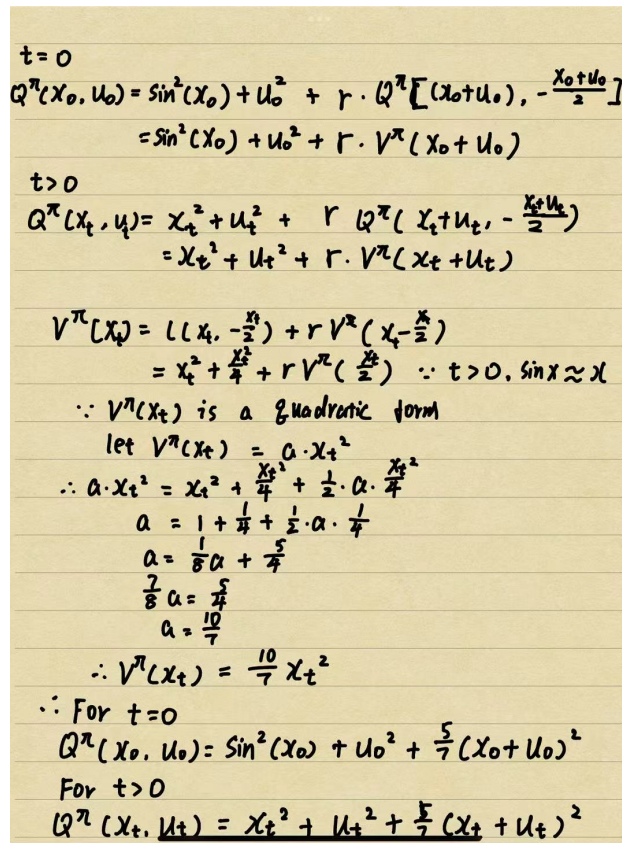 t = 0
Q^π(x₀, u₀) = sin²(x₀) + u₀² + r · Q^π[(x₀+u₀), -(x₀+u₀)/2]
= sin²(x₀) + u₀² + r · V^π(x₀ + u₀)
t > 0
Q^π(x_t, u_t) = x_t² + u_t² + r Q^π(x_t+u_t, -(x_t+u_t)/2)
= x_t² + u_t² + r · V^π(x_t + u_t)
V^π(x_t) = l(x_t, -x_t/2) + r V^π(x_t - x_t/2)
= x_t² + x_t²/4 + r V^π(x_t/2) ∵ t > 0, sin x ≈ x
∵ V^π(x_t) is a quadratic form
let V^π(x_t) = a · x_t²
∴ a · x_t² = x_t² + x_t²/4 + 1/2 · a · x_t²/4
a = 1 + 1/4 + 1/2 · a · 1/4
a = 1/8 a + 5/4
7/8 a = 5/4
a = 10/7
∴ V^π(x_t) = 10/7 x_t²
∴ For t = 0
Q^π(x₀, u₀) = sin²(x₀) + u₀² + 5/7 (x₀ + u₀)²
For t > 0
Q^π(x_t, u_t) = x_t² + u_t² + 5/7 (x_t + u_t)²